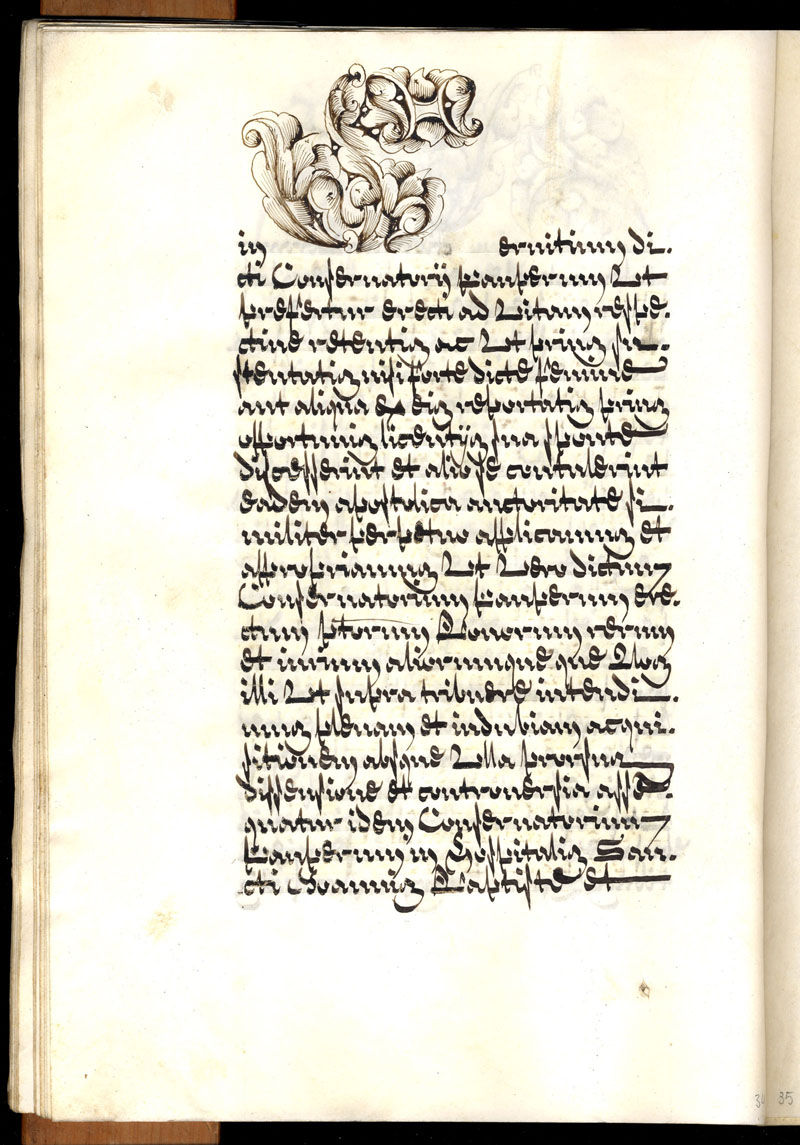 in Seruitium di-
cti Conseruatorij Pauperum Ut
prefertur erecti ad Vitam respe-
ctiue retentis ac Ut prius su-
stentatis nisi forte dicte femine
aut aliqua ex eis reportatis prius
opportunis licentijs sua sponte
discesserint et alio se contulerint
eadem apostolica auctoritate si-
militer perpetuo applicamus et
appropriamus Ut Vero dictum
Conseruatorium Pauperum ere-
ctum ptorum Bonorum rerum
et iurium aliorumque que Quos
illi Ut supra tribuere intendi-
mus plenam et indubiam acqui-
sitionem absque Ulla prorsus
dissensione et controuersia asse-
quatur idem Conseruatorium
Pauperum in Hospitalis San-
cti Joannis Baptiste et
34 35